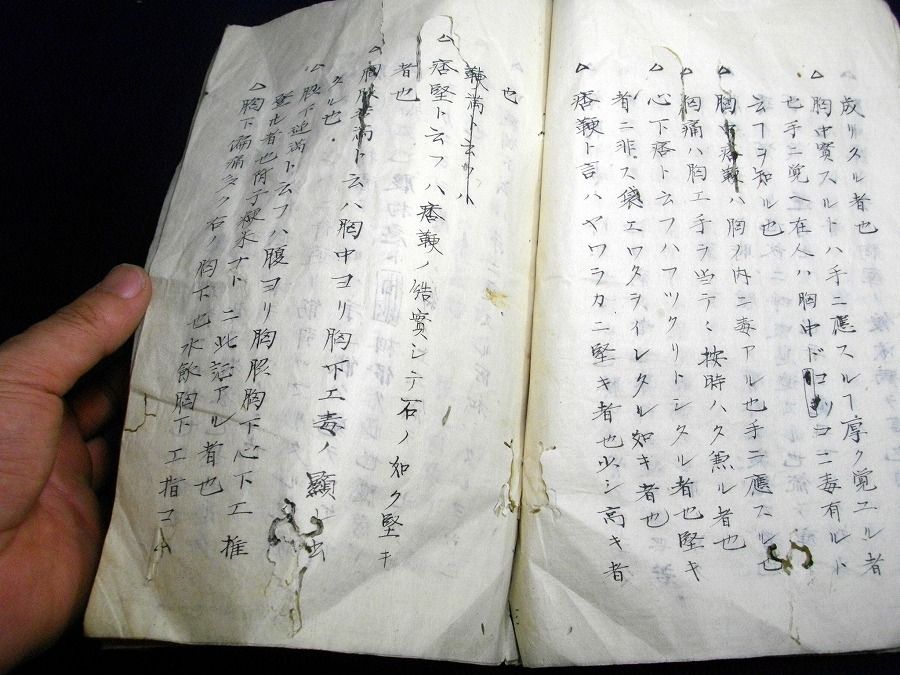 成リタル者也
△胸中實スルトハ手ニ應スルヿ厚ク覚エル者
也手ニ覚ヘ在人ハ胸中ドコソコニ毒有ルト
云フヲ知ル也
△胸中痞鞕ハ胸ノ内ニ毒アル也手ニ應スル也
△胸痛ハ胸エ手ヲ当テ按時ハタ
△心下痞ト云フハフツクリトシタル者也堅キ
者ニ非ス袋エワタヲイレタル如キ者也
△痞鞕ト言ハヤワラカニ堅キ者也少シ高キ者
也
鞕満ト云フハ
△痞堅ト云フハ痞鞕ノ結實シテ石ノ如ク堅キ
者也
△胸脇満ト云ハ胸中ヨリ胸下エ毒ノ顕
タル也
△脇下逆満ト云フハ腹ヨリ胸脇胸下心下エ推
登ル者也附子粳米ナトニ此証アル者也
△胸下偏痛ハ右ノ胸下也水飲胸下エ指コ